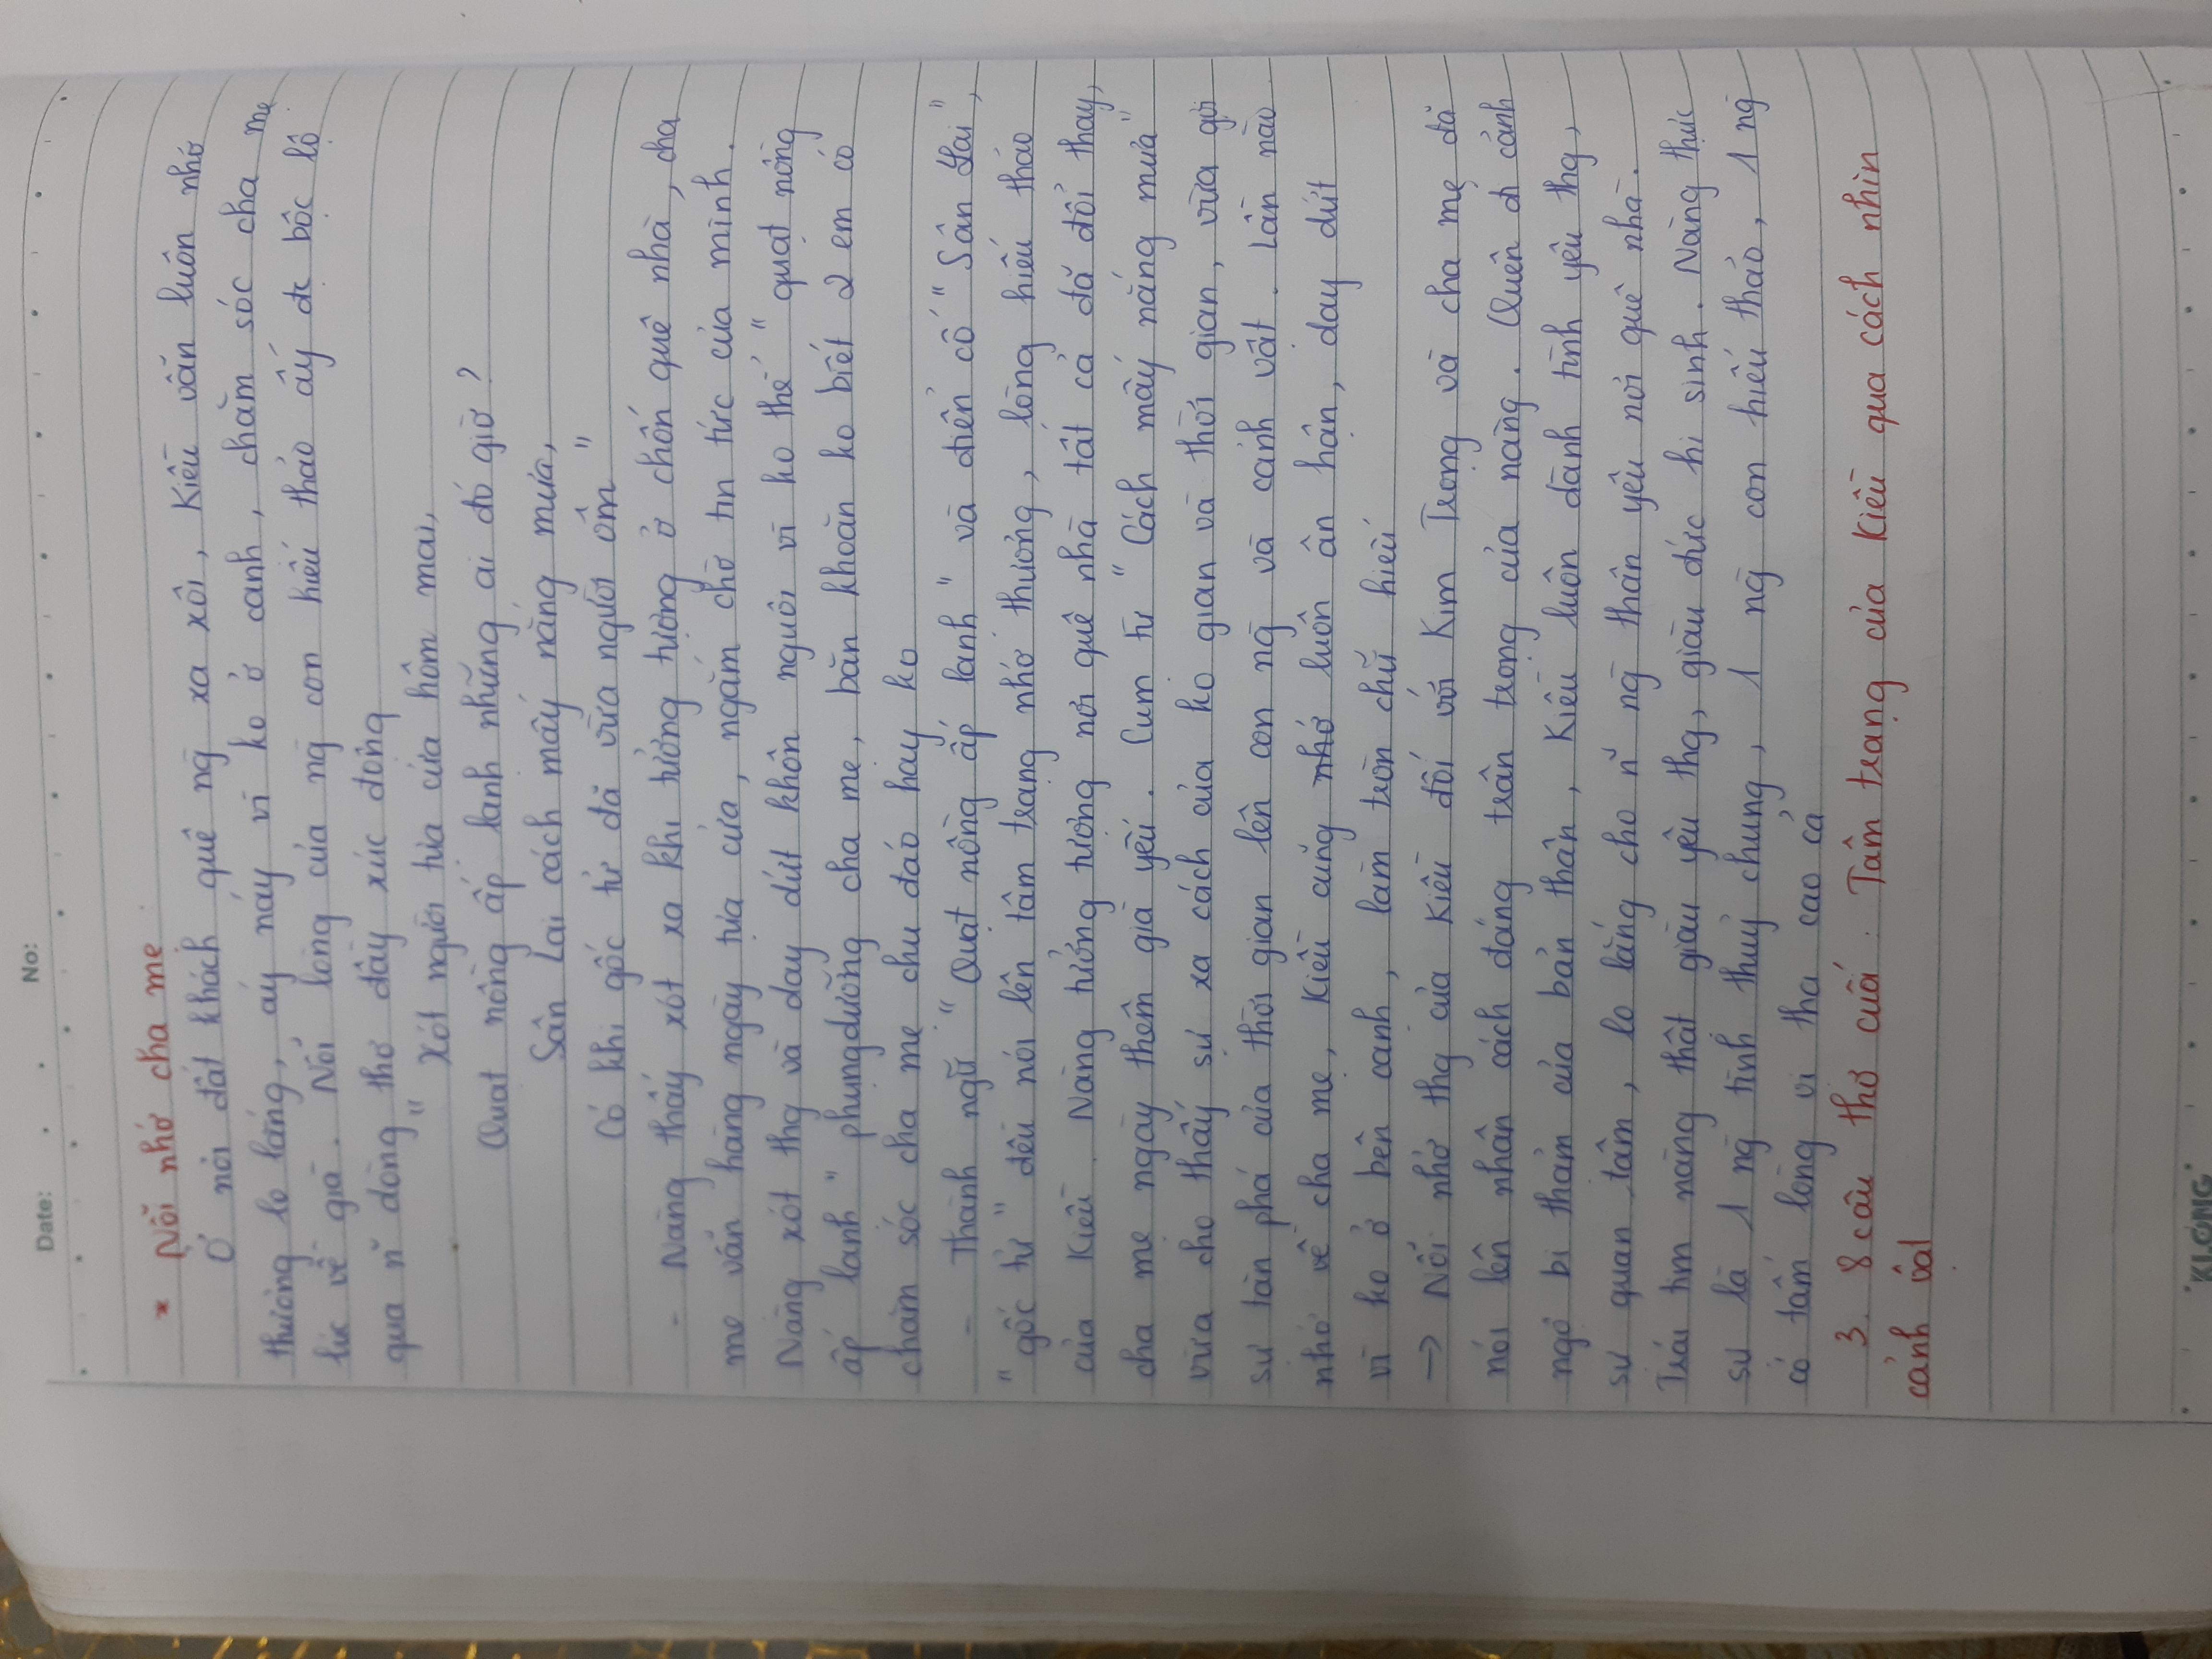 Date: . . No:
* Nỗi nhớ cha mẹ
Ở nơi đất khách quê ng̃ xa xôi, Kiều vẫn luôn nhớ
thương lo lắng, áy náy vì ko ở cạnh, chăm sóc cha mẹ
lúc về già. Nỗi lòng của ng̃ con hiếu thảo ấy đc bộc lộ
qua n̆ dòng thơ đầy xúc động
" Xót người tựa cửa hôm mai,
Quạt nồng ấp lạnh những ai đó giờ ?
Sân Lai cách mấy nắng mưa,
Có khi gốc tử đã vừa người ôm "
- Nàng thấy xót xa khi tưởng tượng ở chốn quê nhà, cha
mẹ vẫn hàng ngày tựa cửa, ngắm chờ tin tức của mình.
Nàng xót thg và day dứt khôn nguôi vì ko thể " quạt nồng
ấp lạnh " phụng dưỡng cha mẹ, băn khoăn ko biết 2 em có
chăm sóc cha mẹ chu đáo hay ko
- Thành ngữ " Quạt nồng ấp lạnh " và điển cố " Sân Lai ",
" gốc tử " đều nói lên tâm trạng nhớ thương, lòng hiếu thảo
của Kiều. Nàng tưởng tượng nơi quê nhà tất cả đã đổi thay,
cha mẹ ngày thêm già yếu. Cụm từ " Cách mấy nắng mưa "
vừa cho thấy sự xa cách của ko gian và thời gian, vừa gợi
sự tàn phá của thời gian lên con ng̃ và cảnh vật. Lần nào
nhớ về cha mẹ, Kiều cũng nhớ luôn ân hận, day dứt
vì ko ở bên cạnh, làm tròn chữ hiếu
→ Nỗi nhớ thg của Kiều đối với Kim Trọng và cha mẹ đã
nói lên nhân cách đáng trân trọng của nàng. Quên đi cảnh
ngộ bi thảm của bản thân, Kiều luôn dành tình yêu thg,
sự quan tâm, lo lắng cho n̆ ng̃ thân yêu nơi quê nhà.
Trái tim nàng thật giàu yêu thg, giàu đức hi sinh. Nàng thực
sự là 1 ng̃ tình thuỷ chung, 1 ng̃ con hiếu thảo, 1 ng̃
có tấm lòng vị tha cao cả
3. 8 câu thơ cuối : Tâm trạng của Kiều qua cách nhìn
cảnh vật
"KLONG"